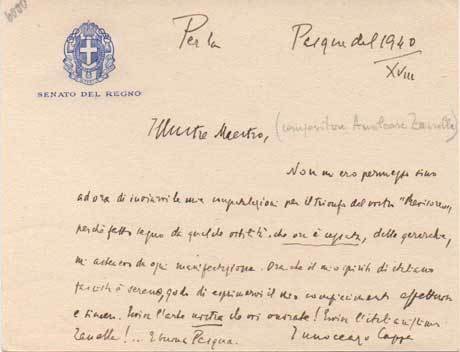 6000
Per la Pasqua del 1940
XVIII
SENATO DEL REGNO
Illustre Maestro, (compositore Amilcare Zanella)
Non m'ero permesso sino
ad ora di inviarvi le mie congratulazioni per il trionfo del vostro "Revisore",
perchè fatto segno da qualche ostilità, che ora è cessata, delle gerarchie,
mi astenevo da ogni manifestazione. Ora che il mio spirito di italiano
fascista è sereno, godo di esprimervi il mio compiacimento affettuoso
e sincero. Evviva l'arte nostra che voi onorate! Evviva l'
Zanella!... E buona Pasqua. Innocenzo Cappa